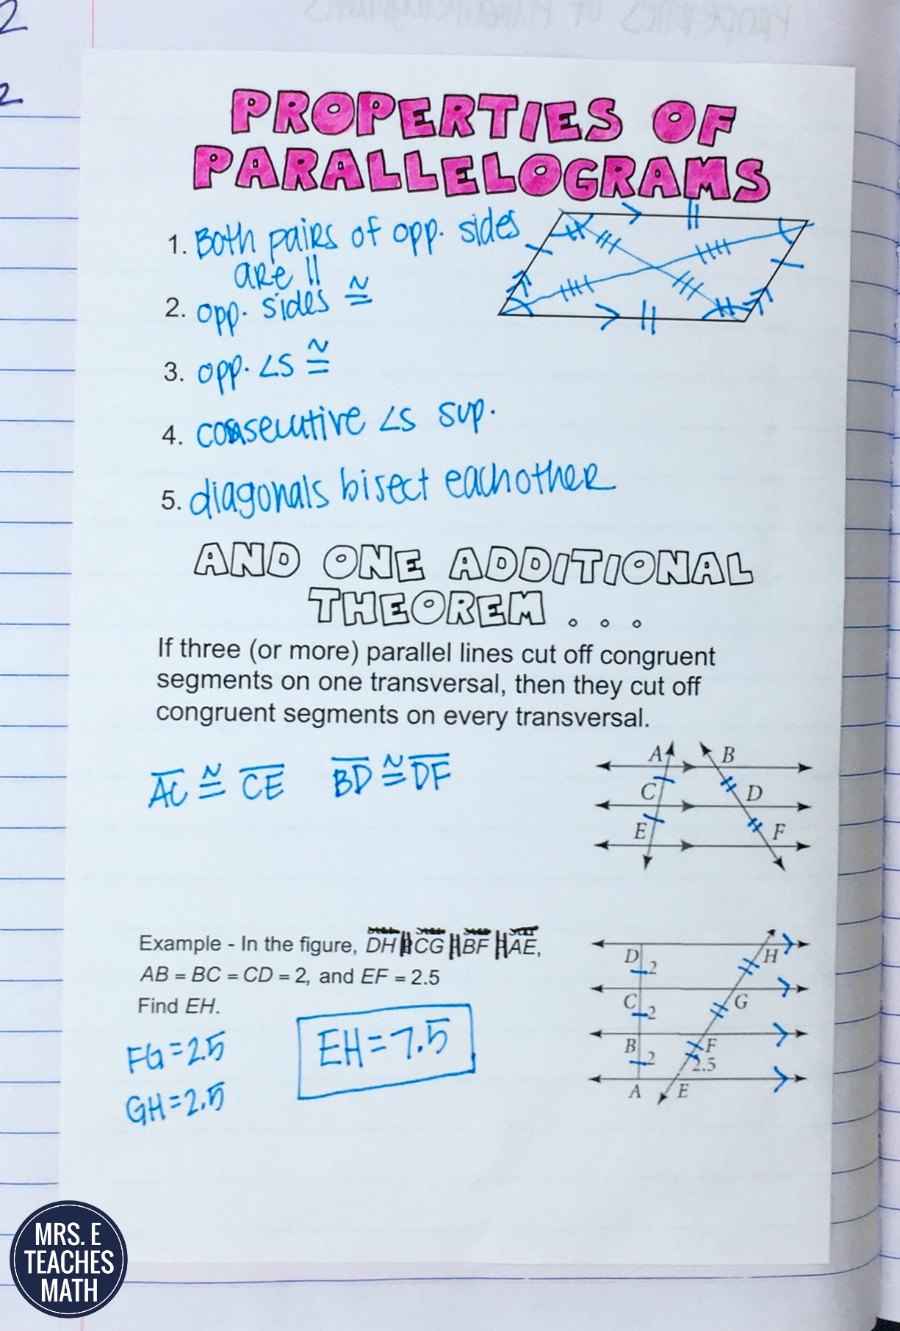 2
2
PROPERTIES OF
PARALLELOGRAMS
1. Both pairs of opp. sides
are ||
2. opp. sides ≅
3. opp. ∠s ≅
4. consecutive ∠s sup.
5. diagonals bisect eachother
AND ONE ADDITIONAL
THEOREM . . .
If three (or more) parallel lines cut off congruent
segments on one transversal, then they cut off
congruent segments on every transversal.
AC ≅ CE BD ≅ DF
A B
C D
E F
Example - In the figure, DH || CG || BF || AE,
AB = BC = CD = 2, and EF = 2.5
Find EH.
FG = 2.5
GH = 2.5
EH = 7.5
D 2 H
C 2 G
B 2 F
2.5
A E
MRS. E
TEACHES
MATH